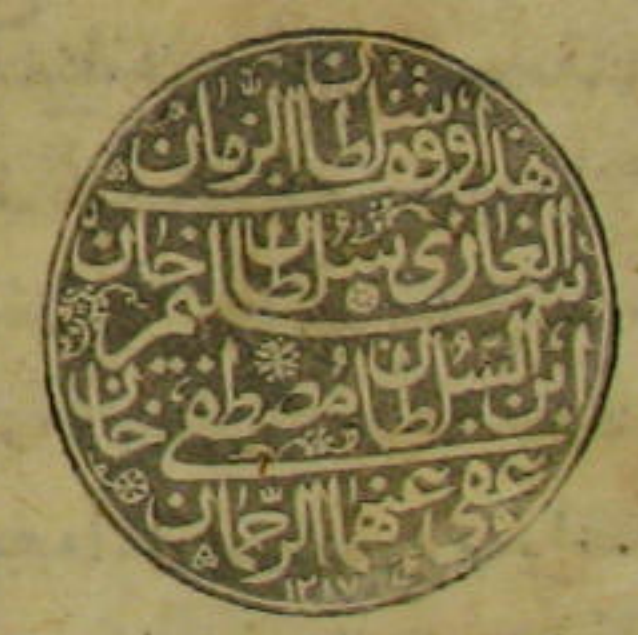 هذا وقف سلطان الزمان
الغازي سلطان سليم خان
ابن السلطان مصطفى خان
عفي عنهما الرحمان
١٢١٧